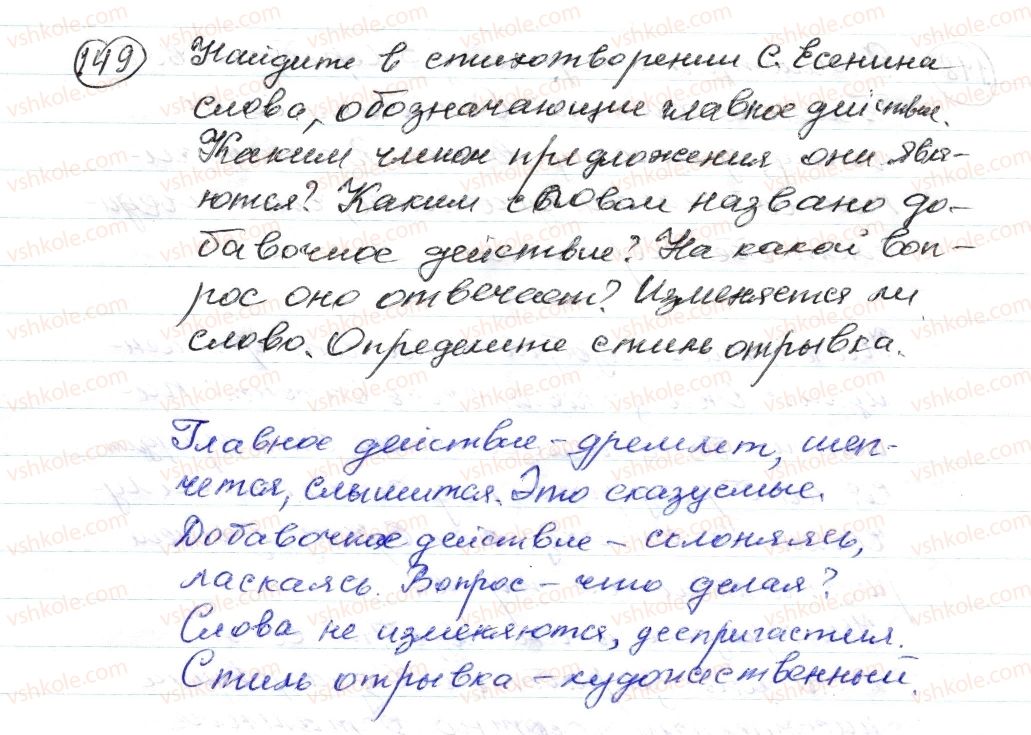 149 Найдите в стихотворении С. Есенина
слова, обозначающие главное действие.
Каким членом предложения они явля-
ются? Каким словом названо до-
бавочное действие? На какой воп-
рос оно отвечает? Изменяется ли
слово. Определите стиль отрывка.
Главное действие - дремлет, шеп-
чется, слышится. Это сказуемые.
Добавочное действие - склоняясь,
ласкаясь. Вопрос - что делая?
Слова не изменяются, деепричастия.
Стиль отрывка - художественный.